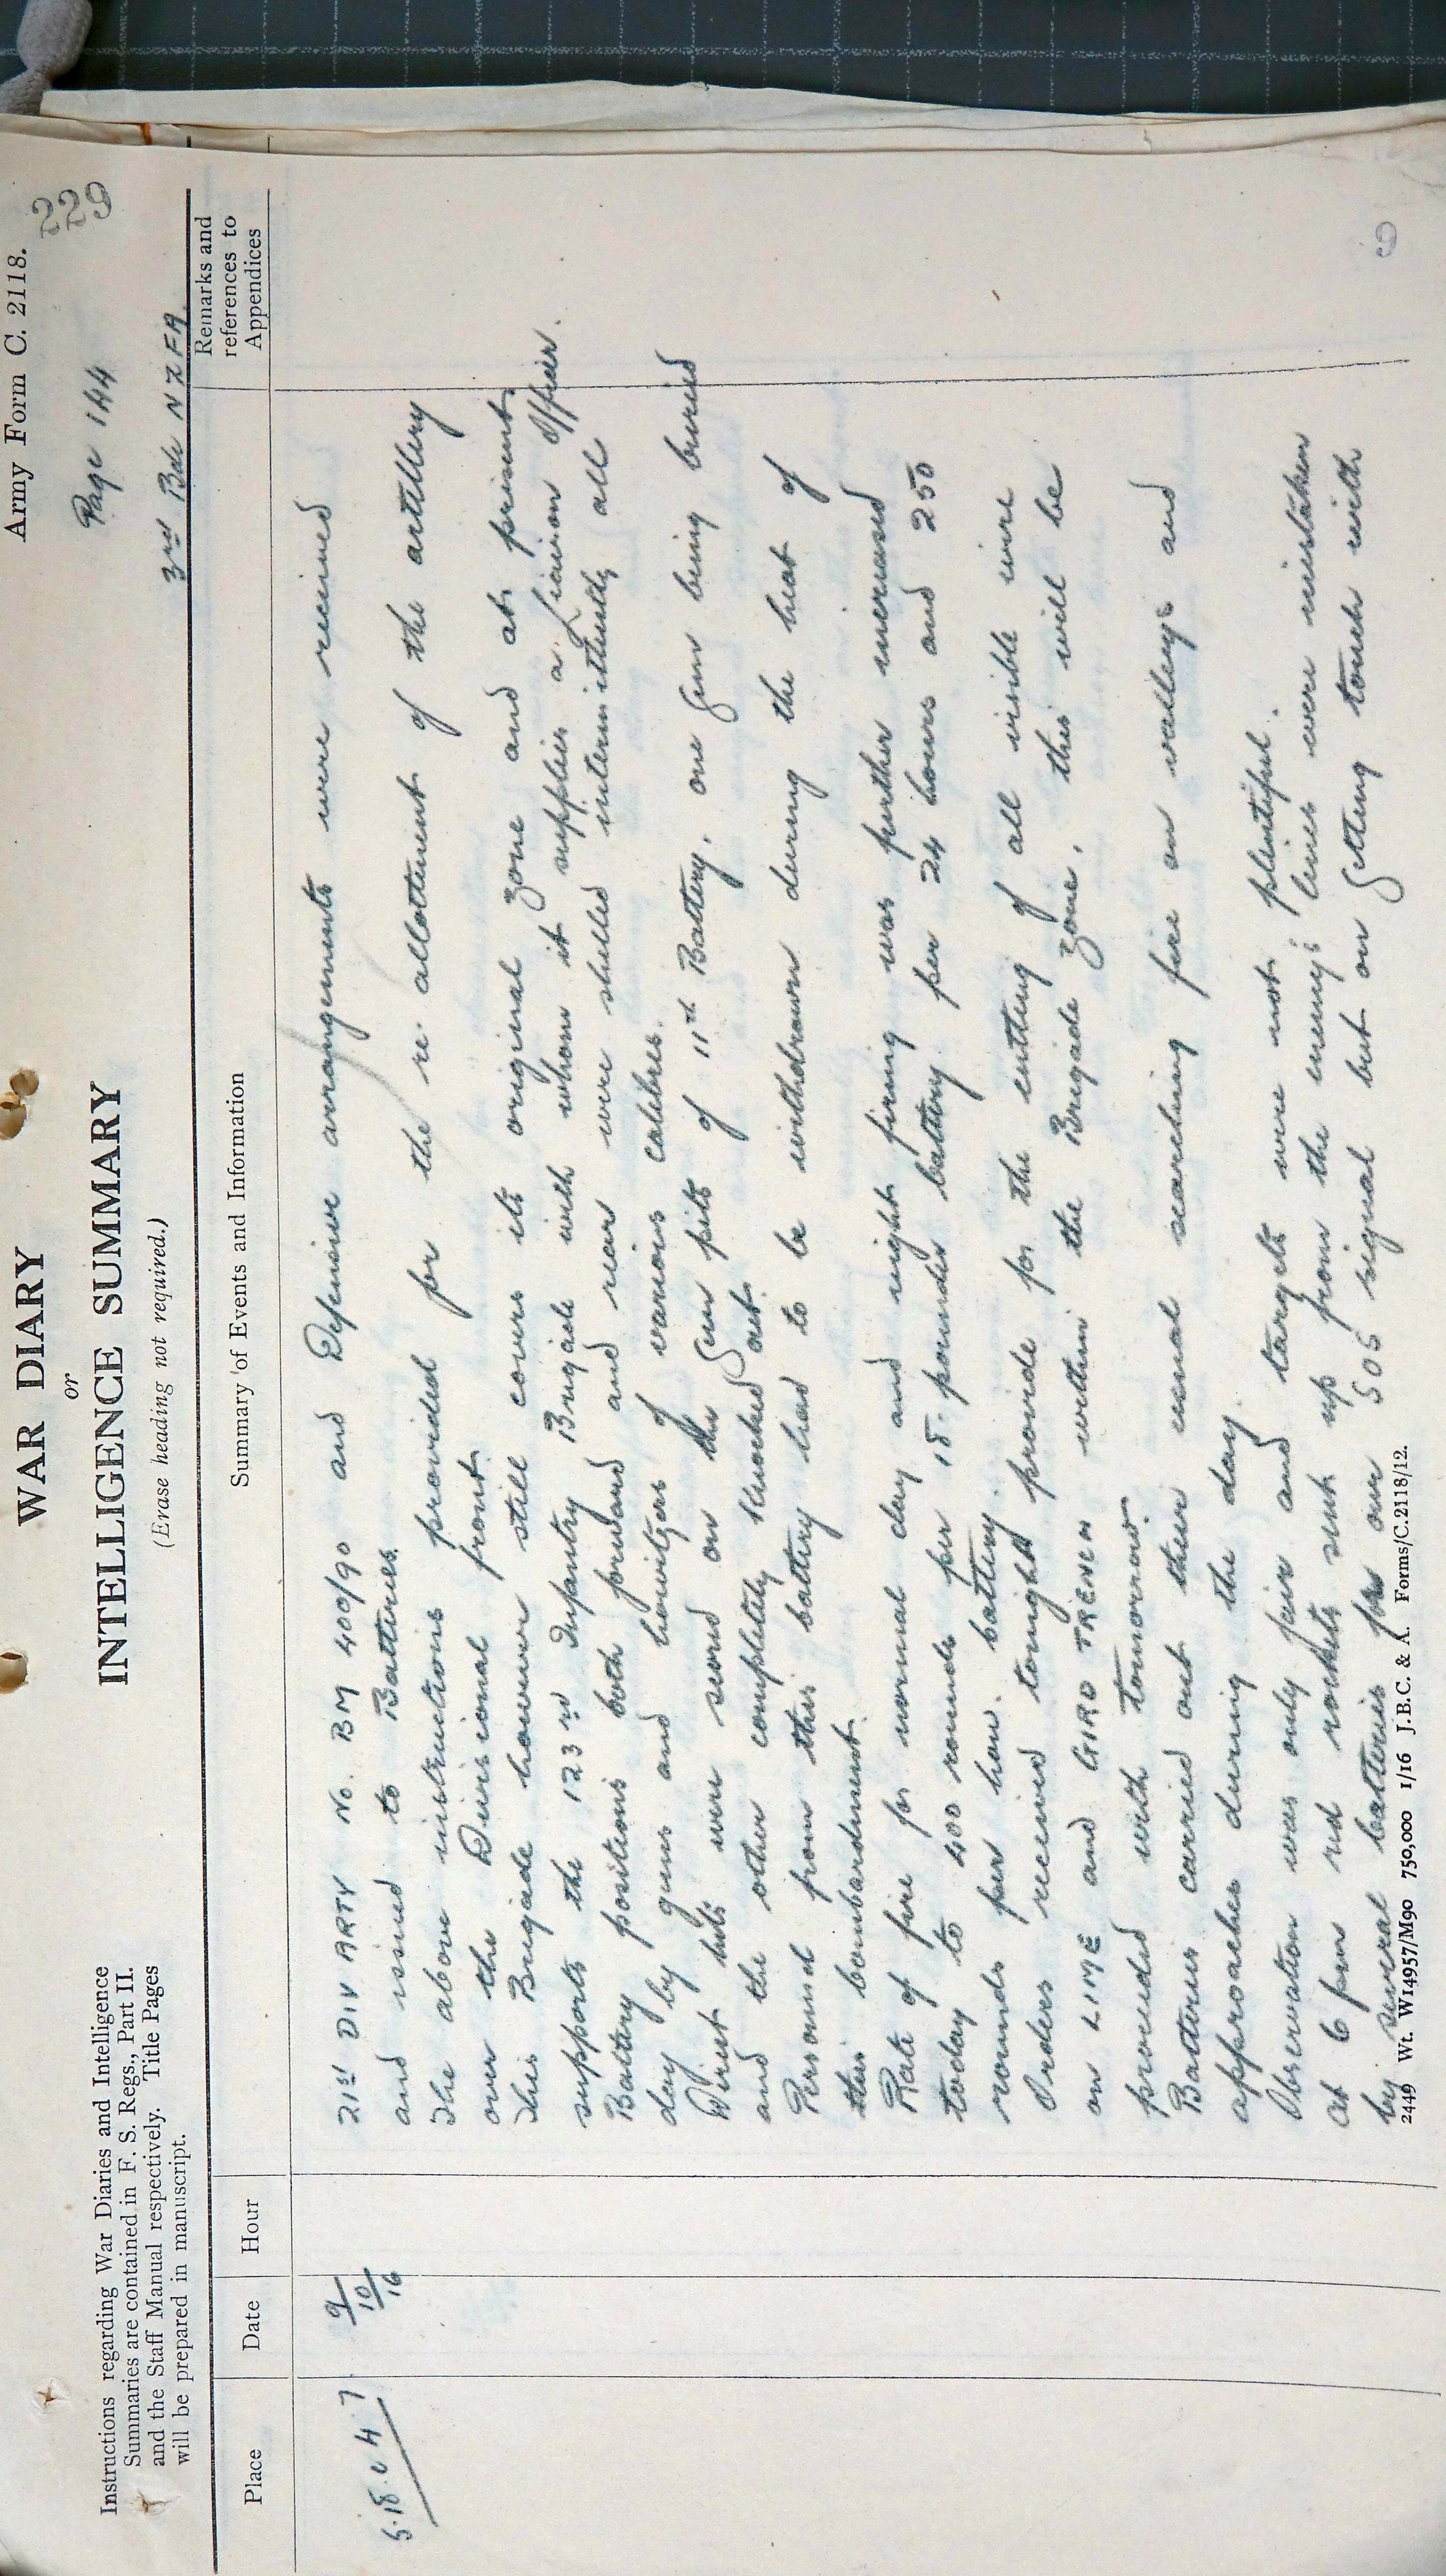 Army Form C. 2118.
229
WAR DIARY
or
INTELLIGENCE SUMMARY
(Erase heading not required.)
Page 144
3rd Bde NZFA
Instructions regarding War Diaries and Intelligence
Summaries are contained in F. S. Regs., Part II.
and the Staff Manual respectively. Title Pages
will be prepared in manuscript.
Place
Date
Hour
Summary of Events and Information
Remarks and
references to
Appendices
9/10/16
21st DIV ARTY No. BM 400/90 and Defensive arrangements were received
and issued to Batteries.
The above instructions provided for the re allotment of the artillery
over the Divisional front.
This Brigade however still covers its original zone and at present
supports the 123rd Infantry Brigade with whom it supplies a Liaison Officer.
Battery positions both forward and rear were shelled intermittently all
day by guns and howitzers of various calibres.
Direct hits were scored on the Gun pits of 11th Battery, one Gun being buried
and the other completely knocked out.
Personnel from this battery had to be withdrawn during the heat of
this bombardment.
Rate of fire for normal day and night firing was further increased
today to 400 rounds per 18-pounder battery per 24 hours and 250
rounds per how. battery.
Orders received tonight provide for the cutting of all visible wire
on LIME and GIRD TRENCH within the Brigade zone, this will be
proceeded with tomorrow.
Batteries carried out their usual searching fire on valleys and
approaches during the day.
Observation was only fair and targets were not plentiful.
At 6 pm red rockets sent up from the enemy's lines were mistaken
by several batteries for our SOS signal but on getting touch with
2449 Wt. W14957/M90 750,000 1/16 J.B.C. & A. Forms/C.2118/12.